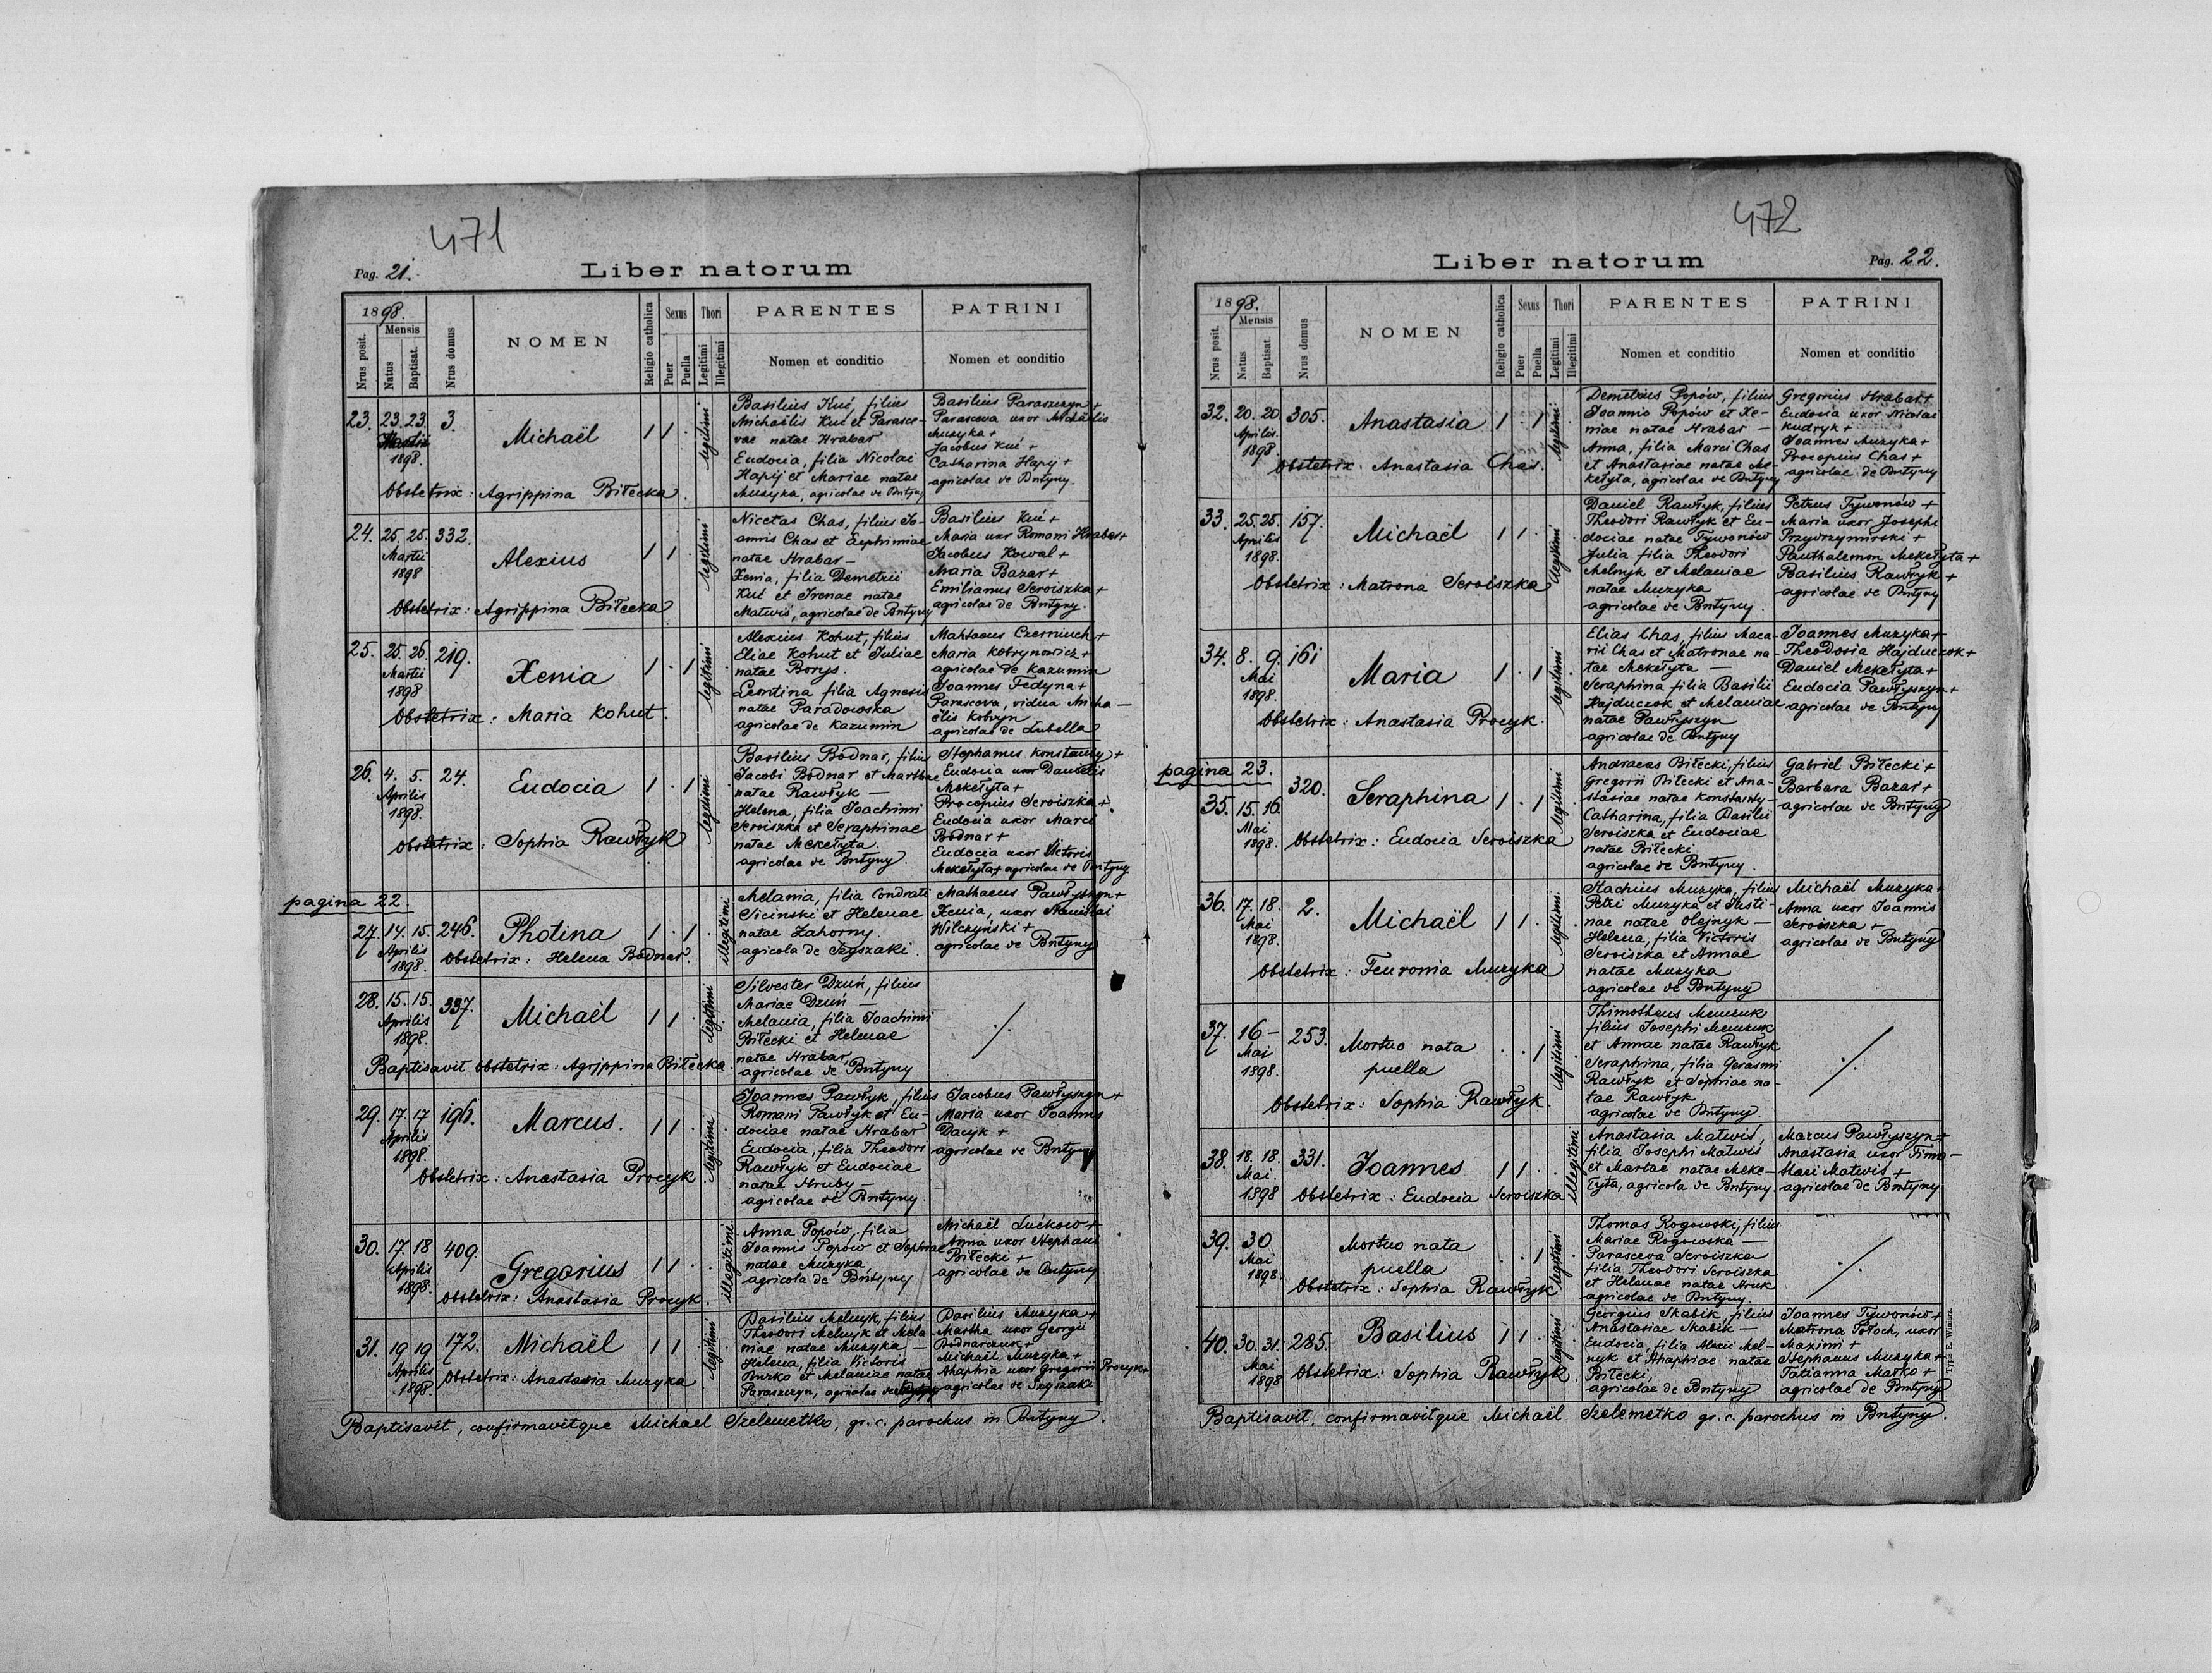 471
Pag. 21.
Liber natorum
1898.
Nrus posit.
Mensis
Natus
Baptisat.
Nrus domus
NOMEN
Religio catholica
Sexus
Puer
Puella
Thori
Legitimi
Illegitimi
PARENTES
Nomen et conditio
PATRINI
Nomen et conditio
23. 23. 23. 3.
1898.
Michaël
1 1 .
legitimi
Basilius Kuć, filius
Michaëlis Kuć et Parasce-
vae natae Hrabar
Eudocia, filia Nicolai
Hapij et Mariae natae
Muzyka, agricolae de Bntyny
Basilius Paraszczyn +
Parasceva uxor Michaëlis
Muzyka +
Jacobus Kuć +
Catharina Hapij +
agricolae de Bntyny.
Obstetrix: Agrippina Biłecka
24. 25. 25. 332.
Martii
1898
Alexius
1 1 .
legitimi
Nicetas Chas, filius Jo-
annis Chas et Euphrimiae
natae Hrabar —
Xenia, filia Demetrii
Kuć et Irenae natae
Matwis, agricolae de Bntyny
Basilius Kuć +
Maria uxr Romani Hrabar +
Jacobus Kowal +
Maria Bazar +
Emilianus Seroiszka +
agricolae de Bntyny.
Obstetrix: Agrippina Biłecka
25. 25. 26. 219.
Martii
1898
Xenia
1 . 1
legitimi
Alexius Kohut, filius
Eliae Kohut et Juliae
natae Borys.
Leontina filia Agnesis
natae Paradowska
agricolae de Kazumin
Mathaeus Czerniuch +
Maria Kobrynowicz +
agricolae de Kazumin
Joannes Fedyna +
Parasceva, vidua Micha —
ëlis Kobryn
agricolae de Lubella
Obstetrix: Maria Kohut.
26. 4. 5. 24.
Aprilis
1898.
Eudocia
1 . 1
legitimi
Basilius Bodnar, filius
Jacobi Bodnar et Marthae
natae Rawłyk —
Helena, filia Joachimi
Seroiszka et Seraphinae
natae Mekełyta
agricolae de Bntyny.
Stephanus Konstanty +
Eudocia uxor Danielis
Mekełyta +
Procopius Seroiszka +
Eudocia uxor Marci
Bodnar +
Eudocia uxor Victoris
Mekełyta + agricolae de Bntyny
Obstetrix: Sophia Rawłyk
pagina 22.
27. 14. 15. 246.
Aprilis
1898.
Photina
1 . 1
illegitimi
Melania, filia Condrati
Sicinski et Helenae
natae Zahorny.
agricola de Szyszaki.
Mathaeus Pawłyszyn +
Xenia, uxor Stanislai
Wilczyński +
agricolae de Bntyny
Obstetrix: Helena Bodnar.
28. 15. 15. 337.
Aprilis
1898.
Michaël
1 1 .
legitimi
Silvester Dzuń, filius
Mariae Dzuń —
Melania, filia Joachimi
Biłecki et Helenae
natae Hrabar,
agricolae de Bntyny
Baptisavit obstetrix: Agrippina Biłecka.
29. 17. 17 196.
Aprilis
1898.
Marcus.
1 1 .
legitimi
Joannes Pawłyk, filius
Romani Pawłyk et Eu-
dociae natae Hrabar
Eudocia, filia Theodori
Rawłyk et Eudociae
natae Hruby —
agricolae de Bntyny.
Jacobus Pawłyszyn +
Maria uxor Joannis
Dacyk +
agricolae de Bntyny
Obstetrix: Anastasia Procyk.
30. 17. 18 409.
Aprilis
1898.
Gregorius
1 1 .
illegitimi
Anna Popów, filia
Joannis Popów et Sophiae
natae Muzyka,
agricola de Bntyny
Michaël Lućkow +
Anna uxor Stephani
Biłecki +
agricolae de Bntyny
Obstetrix: Anastasia Procyk.
31. 19 19 172.
Aprilis
1898.
Michaël
1 1 .
legitimi
Basilius Melnyk, filius
Theodori Melnyk et Mela
niae natae Muzyka —
Helena, filia Victoris
Burko et Melaniae natae
Paraszczyn, agricolae de Bntyny
Basilius Muzyka +
Martha uxor Georgii
Bodnarczuk +
Michaël Muzyka +
Ahaphia uxor Gregorii Procyk +
agricolae de Szyszaki
Obstetrix: Anastasia Muzyka
Baptisavit, confirmavitque Michaël Szelemetko, gr. c. parochus in Bntyny.
472
Liber natorum
Pag. 22.
1898.
Nrus posit.
Mensis
Natus
Baptisat.
Nrus domus
NOMEN
Religio catholica
Sexus
Puer
Puella
Thori
Legitimi
Illegitimi
PARENTES
Nomen et conditio
PATRINI
Nomen et conditio
32. 20. 20 305.
Aprilis.
1898.
Anastasia
1 . 1
legitimi
Demetrius Popów, filius
Joannis Popów et Xe-
niae natae Hrabar —
Anna, filia Marci Chas
et Anastasiae natae Me-
kełyta, agricolae de Bntyny
Gregorius Hrabar +
Eudocia uxor Nicolai
Kudryk +
Joannes Muzyka +
Procopius Chas +
agricolae de Bntyny
Obstetrix: Anastasia Chas.
33. 25. 25. 157.
Aprilis
1898.
Michaël
1 1 .
legitimi
Daniel Rawłyk, filius
Theodori Rawłyk et Eu-
dociae natae Tywonów
Julia filia Theodori
Melnyk et Melaniae
natae Muzyka
agricolae de Bntyny.
Petrus Tywonów +
Maria uxor Josephi
Przydrzymirski +
Panthalemon Mekełyta +
Basilius Rawłyk +
agricolae de Bntyny
Obstetrix: Matrona Seroiszka
34. 8. 9. 161
Mai
1898.
Maria
1 . 1
legitimi
Elias Chas, filius Maca-
rii Chas et Matronae na-
tae Mekełyta —
Seraphina filia Basilii
Hajduczok et Melaniae
natae Pawłyszyn
agricolae de Bntyny
Joannes Muzyka +
Theodosia Hajduczok +
Daniel Mekełyta +
Eudocia Pawłyszyn +
agricolae de Bntyny
Obstetrix: Anastasia Procyk.
pagina 23.
35. 15. 16. 320.
Mai
1898.
Seraphina
1 . 1
legitimi
Andraeas Biłecki, filius
Gregorii Biłecki et Ana-
stasiae natae Konstanty —
Catharina, filia Basilii
Seroiszka et Eudociae
natae Biłecki
agricolae de Bntyny.
Gabriel Biłecki +
Barbara Bazar +
agricolae de Bntyny
Obstetrix: Eudocia Seroiszka
36. 17. 18. 2.
Mai
1898.
Michaël
1 1 .
legitimi.
Stachius Muzyka, filius
Petri Muzyka et Justi-
nae natae Olejnyk —
Helena, filia Victoris
Seroiszka et Annae
natae Muzyka
agricolae de Bntyny
Michaël Muzyka +
Anna uxor Joannis
Seroiszka +
agricolae de Bntyny
Obstetrix: Feuronia Muzyka
37. 16 — 253.
Mai
1898.
Mortuo nata
puella
. . 1
legitimi
Thimotheus Memzuk
filius Josephi Memzuk
et Annae natae Rawłyk
Seraphina, filia Gerasmi
Rawłyk et Sophiae na-
tae Rawłyk
agricolae de Bntyny.
Obstetrix: Sophia Rawłyk.
38. 18. 18. 331.
Mai.
1898
Joannes
1 1 .
illegitimi
Anastasia Matwis,
filia Josephi Matwis
et Martae natae Meke-
łyta, agricola de Bntyny.
Marcus Pawłyszyn +
Anastasia uxor Timo —
thei Matwis +
agricolae de Bntyny
Obstetrix: Eudocia Seroiszka
39. 30
Mai
1898.
Mortuo nata
puella
. 1
legitimi
Thomas Rogowski, filius
Mariae Rogowska —
Parasceva Seroiszka
filia Theodori Seroiszka
et Helenae natae Hruk
agricolae de Bntyny
Obstetrix: Sophia Rawłyk
40. 30. 31. 285.
Mai
1898
Basilius
1 1 .
legitimi
Georgius Skabik, filius
Anastasiae Skabik —
Eudocia, filia Alexii Mel-
nyk et Ahaphiae natae
Biłecki,
agricolae de Bntyny
Joannes Tywonów +
Matrona Potoch, uxor
Maximi +
Stephanus Muzyka +
Tatianna Matko +
agricolae de Bntyny
Obstetrix: Sophia Rawłyk.
Typis E. Winiarz.
Baptisavit, confirmavitque Michaël Szelemetko gr. c. parochus in Bntyny.